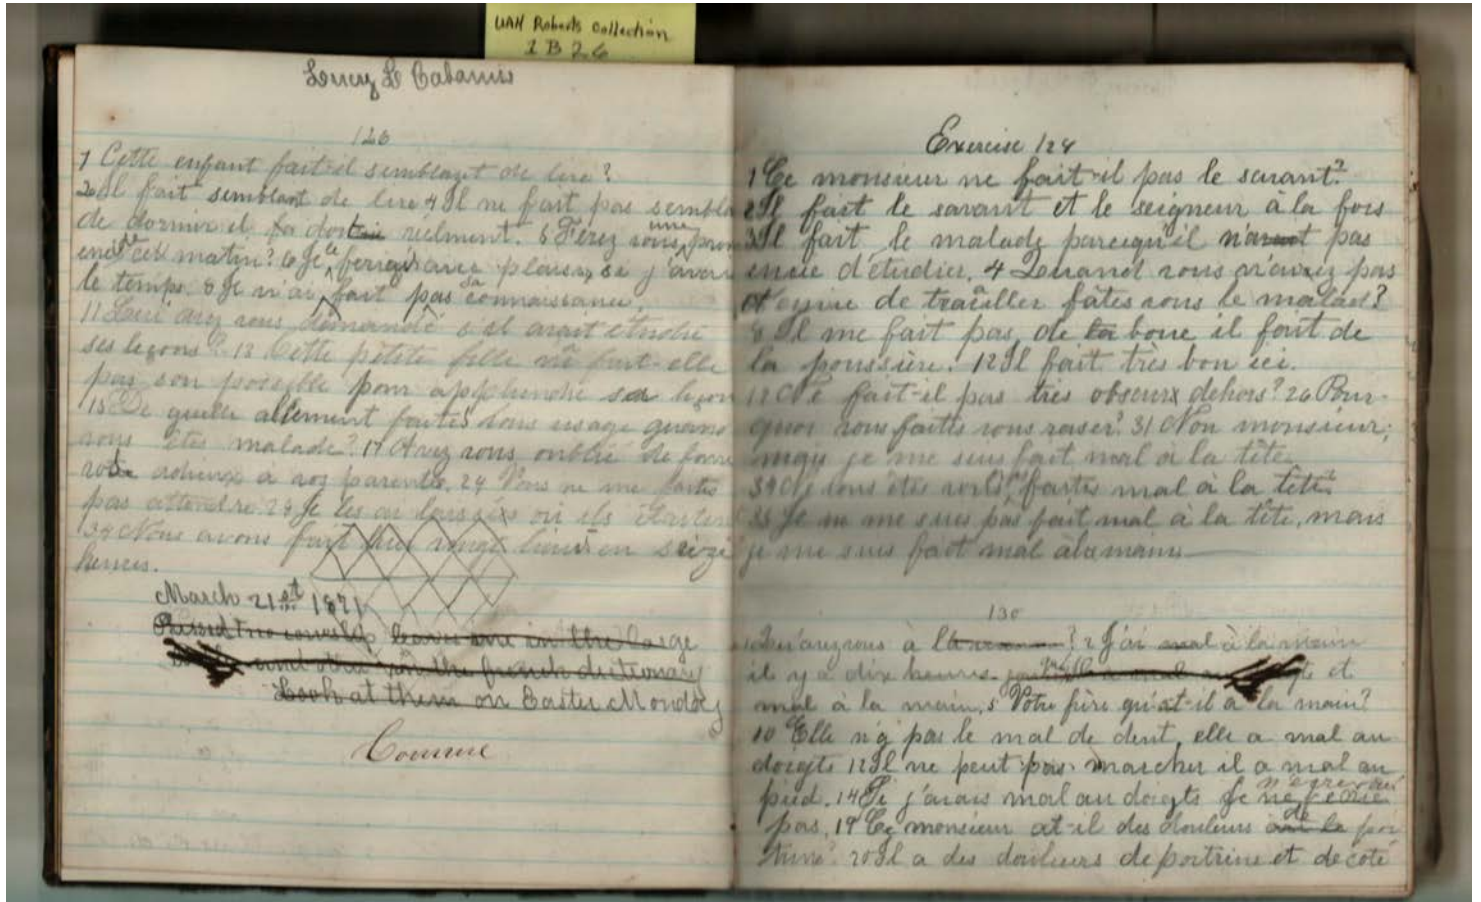 UAH Roberts Collection
1B26
Lucy L Cabaniss
126
1 Cette enfant fait-il semblant de lire?
2 Il fait semblant de lire 4 Il ne fait pas sembla
de dormir il réelment. 5 Ferez vous une prom
cet matin? 6 Je plaisir si j'avai
le temps. 8 Je n'ai fait pas sa connaissance.
11 Lui avez vous demandé s il avait étudié
ses leçons? 12 Cette petite fille ne fait-elle
pas son possible pour apprendre sa leçon
15 De quelle aliment faites vous usage quand
vous êtes malade? 17 Avez vous oublié de faire
vos adieux à vos parents. 24 Vous ne me faites
pas attendre 28 Je les ai laissés où ils étaient
34 Nous avons fait vingt lieus en seize
heures.
March 21st 1871
leaves one in the large
and other in the french dictionary
Look at them on Easter Monday
Comme
Exercise 128
1 Ce monsieur ne fait-il pas le savant?
2 Il fait le savant et le seigneur à la fois
3 Il fait le malade parcequ'il n'avait pas
envie d'étudier. 4 Quand vous n'avez pas
envie de travailler faites vous le malade?
8 Il me fait pas de la boue il fait de
la poussière. 12 Il fait très bon ici.
fait-il pas très obscur dehors? 26 Pour-
quoi vous faites vous raser? 31 Non monsieur;
mais je me suis fait mal à la tête.
34 vous êtes vous faites mal à la tête?
35 Je ne me suis pas fait mal à la tête, mais
je me suis fait mal à la main
130
Qu'avez vous à la ? 2 J'ai mal à la main
il y a dix heures. et
mal à la main. 5 Votre frère qu'at-il à la main?
10 Elle n'a pas le mal de dent, elle a mal au
doigts 12 Il ne peut pas marcher il a mal au
pied. 14 Si j'avais mal au doigts je n'écrirai
pas. 19 Ce monsieur at-il des douleurs de poi
trine? 20 Il a des douleurs de poitrine et de coté